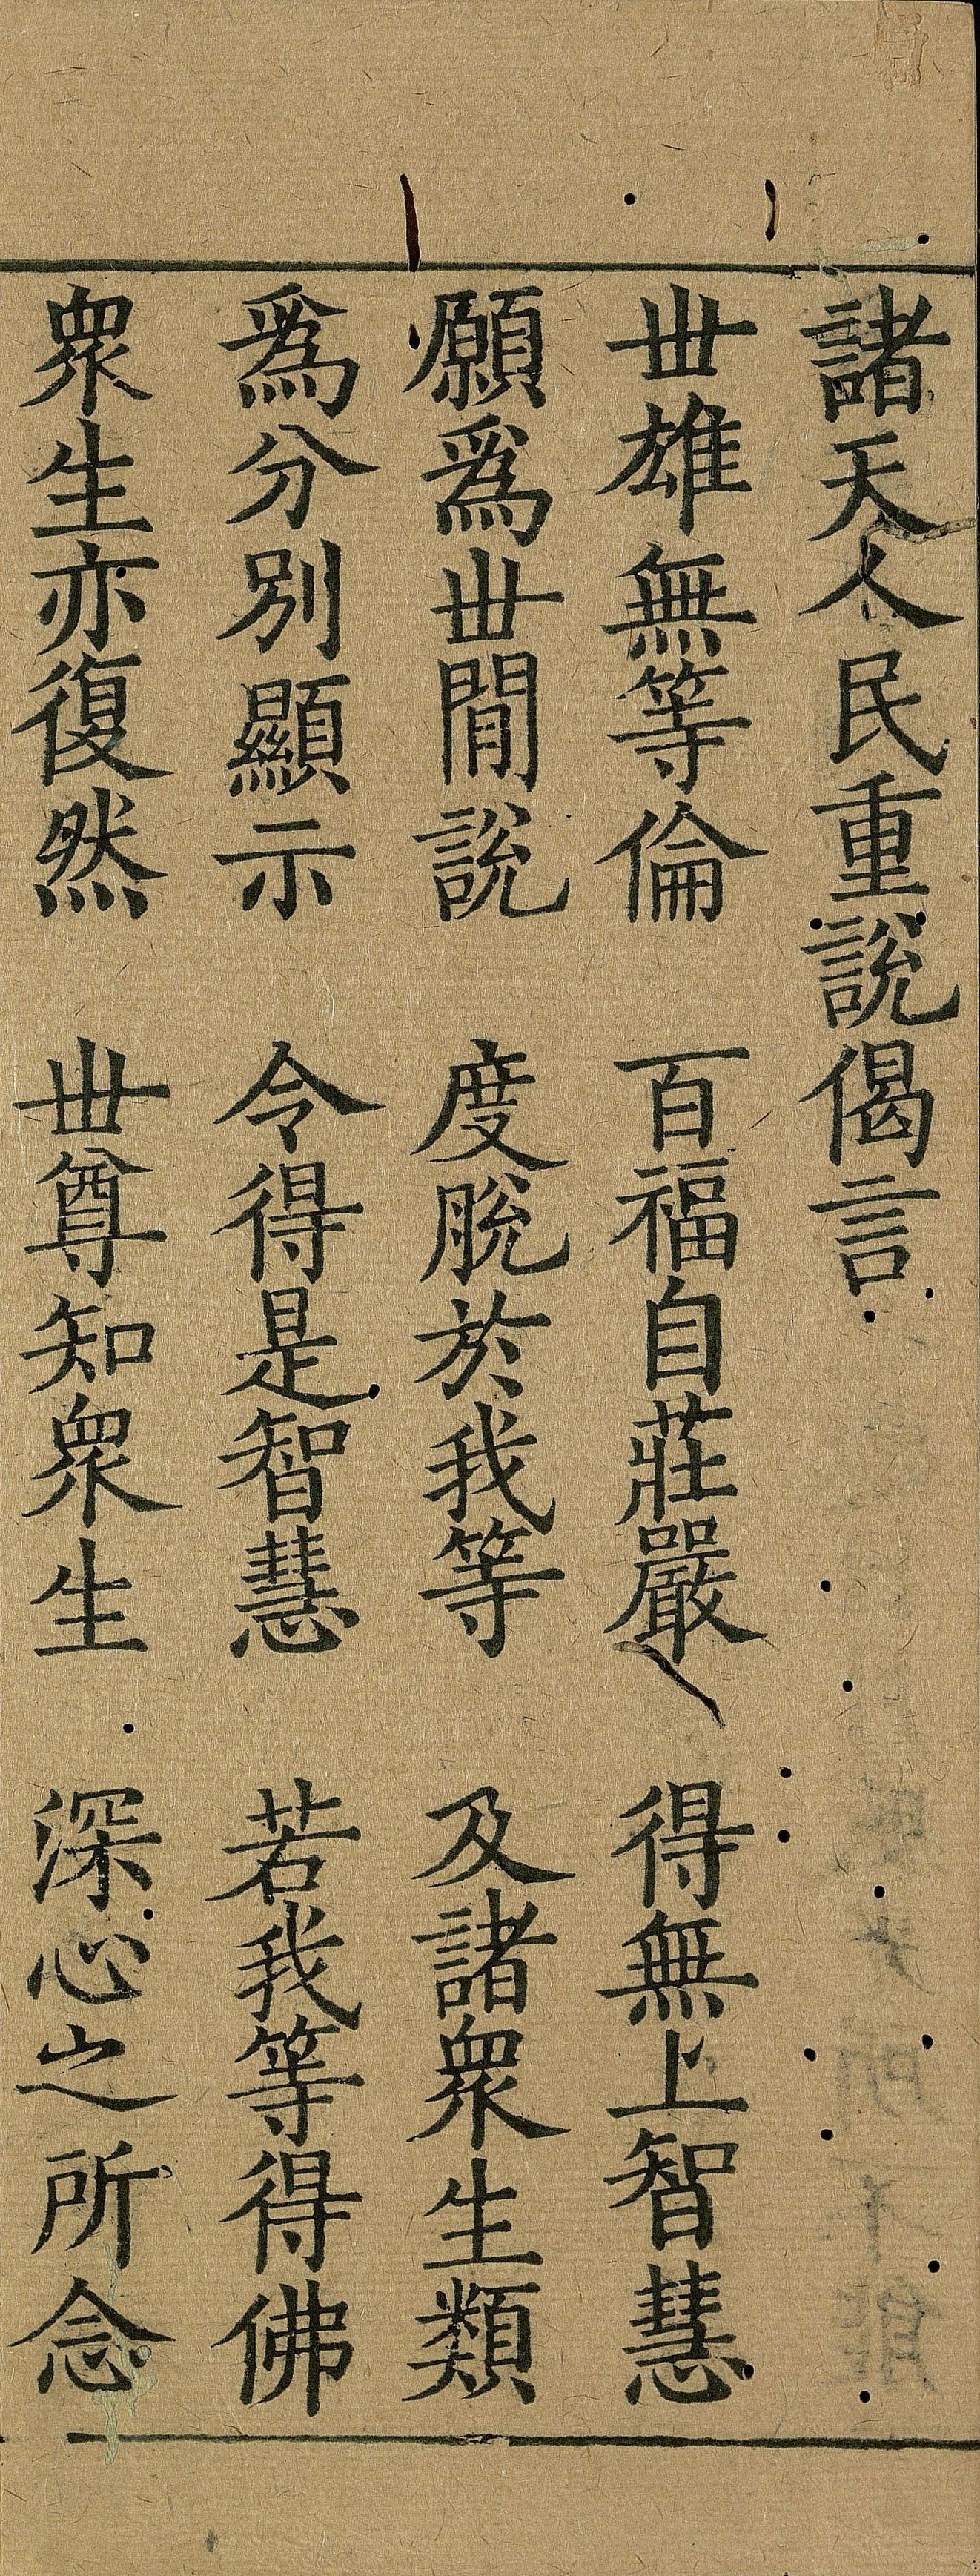 諸天人民重說偈言
丗雄無等倫　百福自莊嚴　得無上智慧
願為丗間說　度脫於我等　及諸衆生類
為分別顯示　令得是智慧　若我等得佛
衆生亦復然　丗尊知衆生　深心之所念